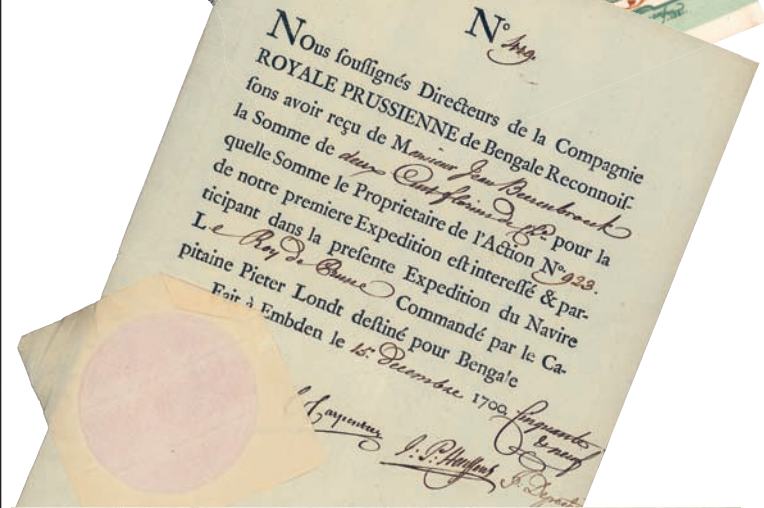 N°
Nous souſſignés Directeurs de la Compagnie
ROYALE PRUSSIENNE de Bengale Reconnoiſ-
ſons avoir reçu de Monsieur Jean Beerenbroeck
la Somme de deux Cent florins de pour la
quelle Somme le Proprietaire de l'Action N° 923.
de notre premiere Expedition eſt intereſſé & par-
ticipant dans la preſente Expedition du Navire
Le Roy de Prusse Commandé par le Ca-
pitaine Pieter Londt deſtiné pour Bengale
Fait à Embden le 15. Decembre 1700 Cinquante
& neuf